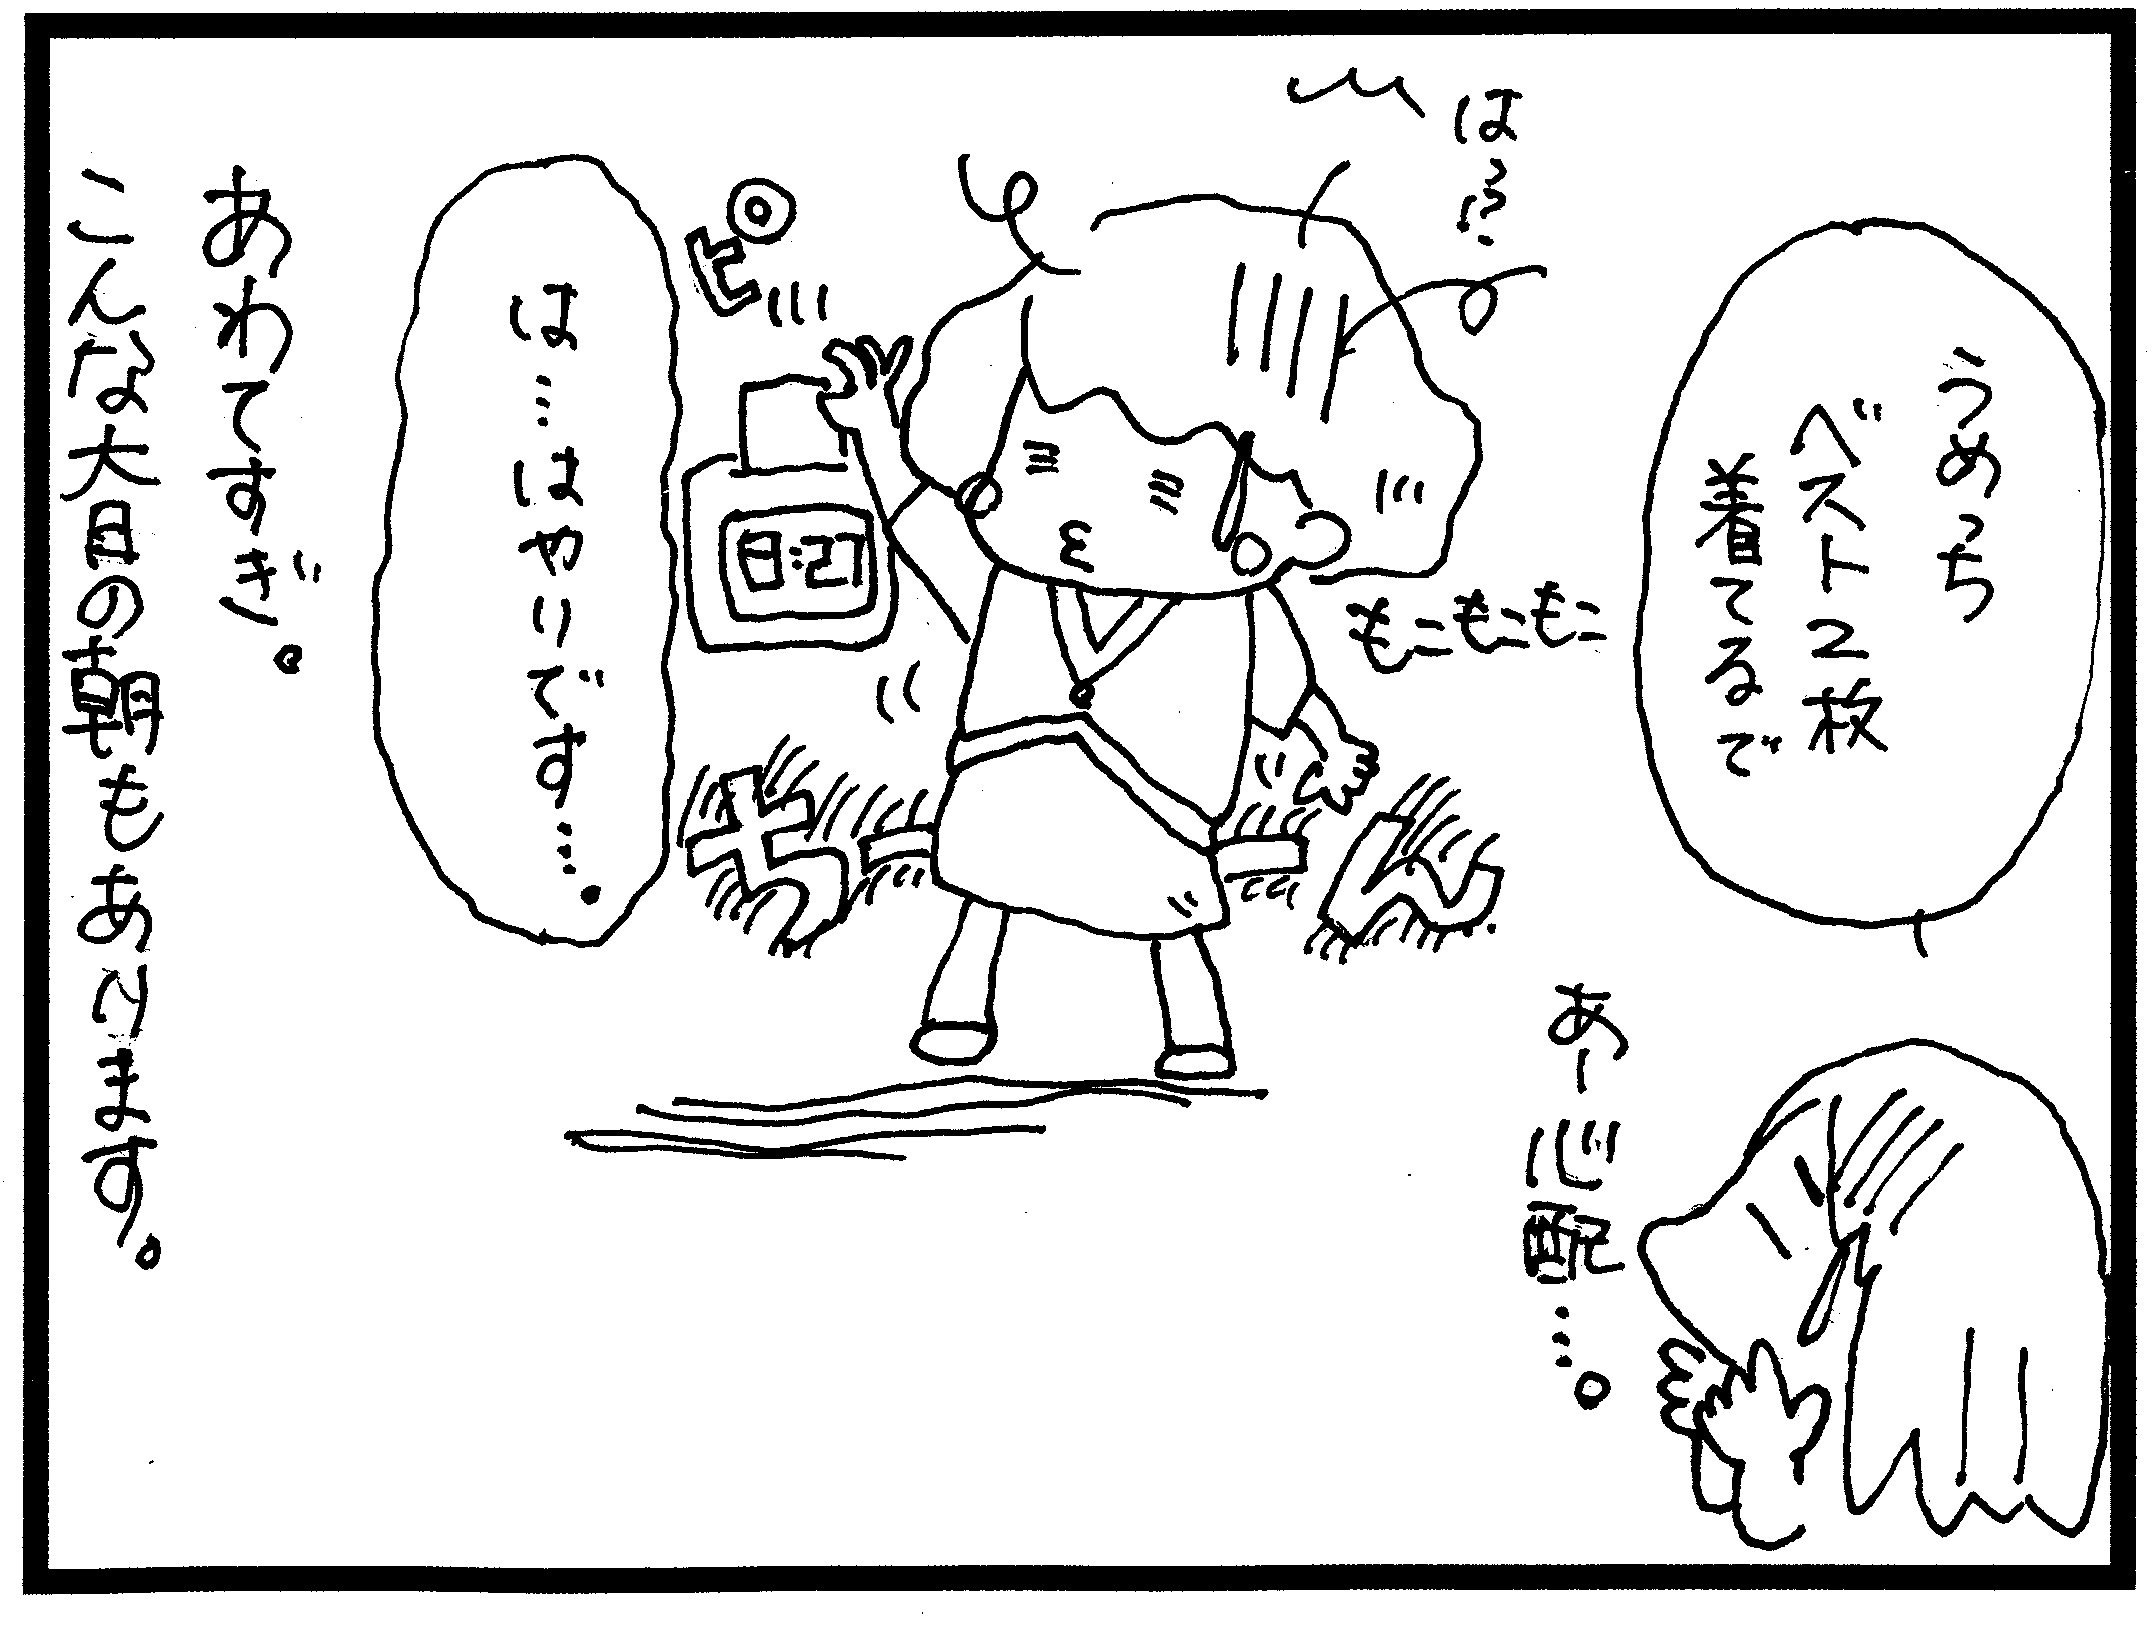 うめっち
ベスト2枚
着てるで
は!?
もこもこもこ
あー心配…。
ピ
8:27
ギクーッ
は…はやりです…。
あわてすぎ。
こんな大目の朝もあります。